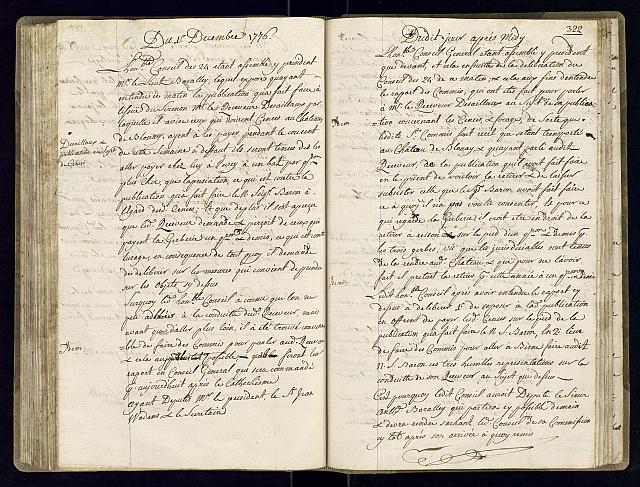 Du 1r Decembre 1776.
honble Conseil des 24 etant assemblé y president
Mr le Lieut Baratley lequel expose qu'ayant
entendu ce matin la publication qu'a fait faire a
l'issue du Sermon Mr le Receveur Deraillaux par
laquelle il avise ceux qui doivent Censes au chateau
de Blonay, ayent à les payer pendant le courent
de cette Semaine à deffaut ils seront tenus de les
aller payer chez luy à
plus cher que ce qui est contre la
publication que fait faire le N. Seigr Baron à
l'Egard dud. Censes, de que de plus il s'est aperçu
que led. Receveur demande le percoit de ceux qui
payent la Gerberie un & demis, ce qui est contre
l'usage, en consequence de tout quoy il demande
de deliberer sur les mesures qui convient de prendre
sur les objets cy dessus
Surquoy led. honble Conseil a connu que l'on ne
peu adhérer à la conduitte dud. Receveur, mais
avant que d'aller plus loin, il a été trouvé convena-
ble de faire des Commis pour parler aud. Receveur
& cela aujourdhuy sy possible feront leur
raport en Conseil General qui sera commandé
pr aujourdhuit après le Cathechisme
ayant Deputé Mr le president, le Sr Jean
Wadens & le Secretaire
Deraillaux &
publication au sujet
de Censes
Item
322
Dudit jour après Midy
L'honble Conseil General etant assemblé y president
que devant, et cela ensuitte de la deliberation du
Conseil des 24 de ce matin & cela aux fins d'entendre
le raport des Commis, qui ont été fait pour parler
à Mr le Receveur Deraillaux au Sujet de sa publica-
tion concernant les Censes & forage, de sorte que
ledits Srs Commis font recit qu'etant transporté
au Chateau de Blonay & qu'ayant parlé audit
Receveur, de la publication qu'il avoit fait faire
en le prient de vouloir la retirer & de laisser
subsister celle que le Sgr Baron avoit fait faire
ce à quoy il n'a pas voulu consenter, & pour ce
qui regarde la Gerberie il croit etre en droit de la
retirer à raison sur le pied d'un qron & Demis pr
les trois gerbes, vû que les jurisdiciables sont tenus
de la rendre aud. Chateau & que pour ne l'avoir
fait il pretent la retirer pr cette année à un qron & Demi
Ledit honble Conseil après avoir entendu le raport cy
dessus à deliberé 1o de s'oposer à lad. publication
en offrent de payer lesd. Censes sur le pied de la
publication qu'a fait faire le N. S. Baron, en 2e lieu
de faire des Commis pour aller à Berne faire audit
N. S. Baron ses tres humbles representations sur la
conduitte de son Receveur au Sujet que dessus
C'est pourquoy ledit Conseil auroit Deputé le Sieur
antne Baratley qui partira sy possible demain
& devra rendre sachant led. Conseil de sa Commission
sy tot après son arrivée à quoy remis
Item